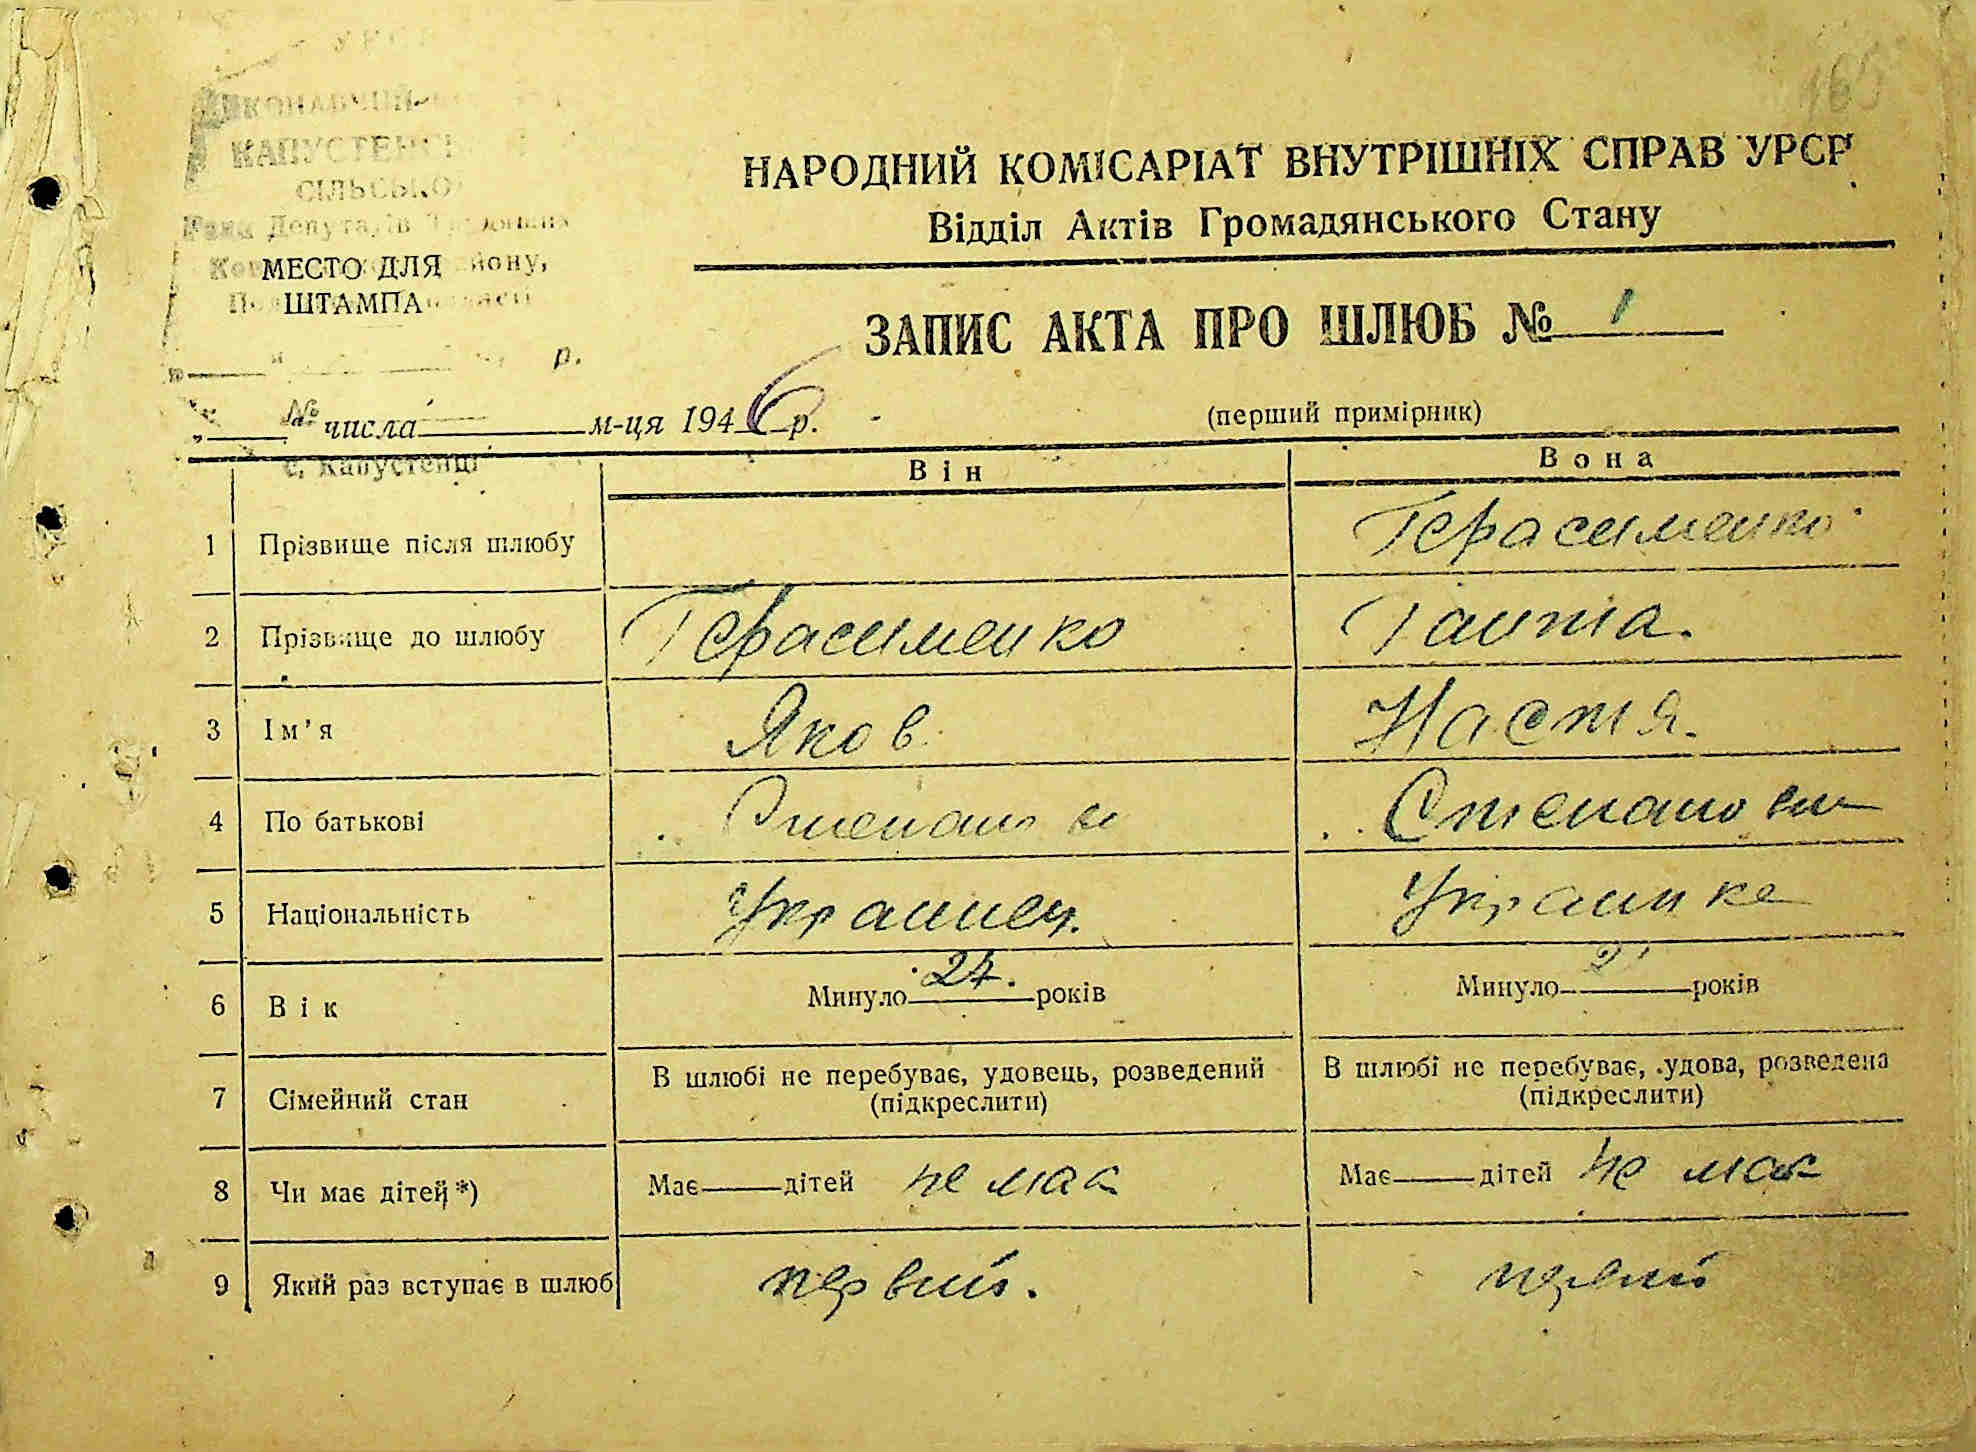 165
ВИКОНАВЧИЙ
КАПУСТЕНСЬ
СІЛЬСЬКО
Ради Депутатів Трудящих
йону,
МЕСТО ДЛЯ
ШТАМПА
р.
№
с. Капустенці
НАРОДНИЙ КОМІСАРІАТ ВНУТРІШНІХ СПРАВ УРСР
Відділ Актів Громадянського Стану
ЗАПИС АКТА ПРО ШЛЮБ № 1
„ “ числа м-ця 1946 р.
(перший примірник)
Він Вона
1 Прізвище після шлюбу Герасименко
2 Прізвище до шлюбу Герасименко
3 Ім’я Яков Настя.
4 По батькові Степанов
5 Національність Украинец. Украинка
6 Вік Минуло 24. років Минуло років
7 Сімейний стан В шлюбі не перебуває, удовець, розведений В шлюбі не перебуває, удова, розведена
(підкреслити) (підкреслити)
8 Чи має дітей *) Має дітей не має Має дітей не має
9 Який раз вступає в шлюб первий. первий